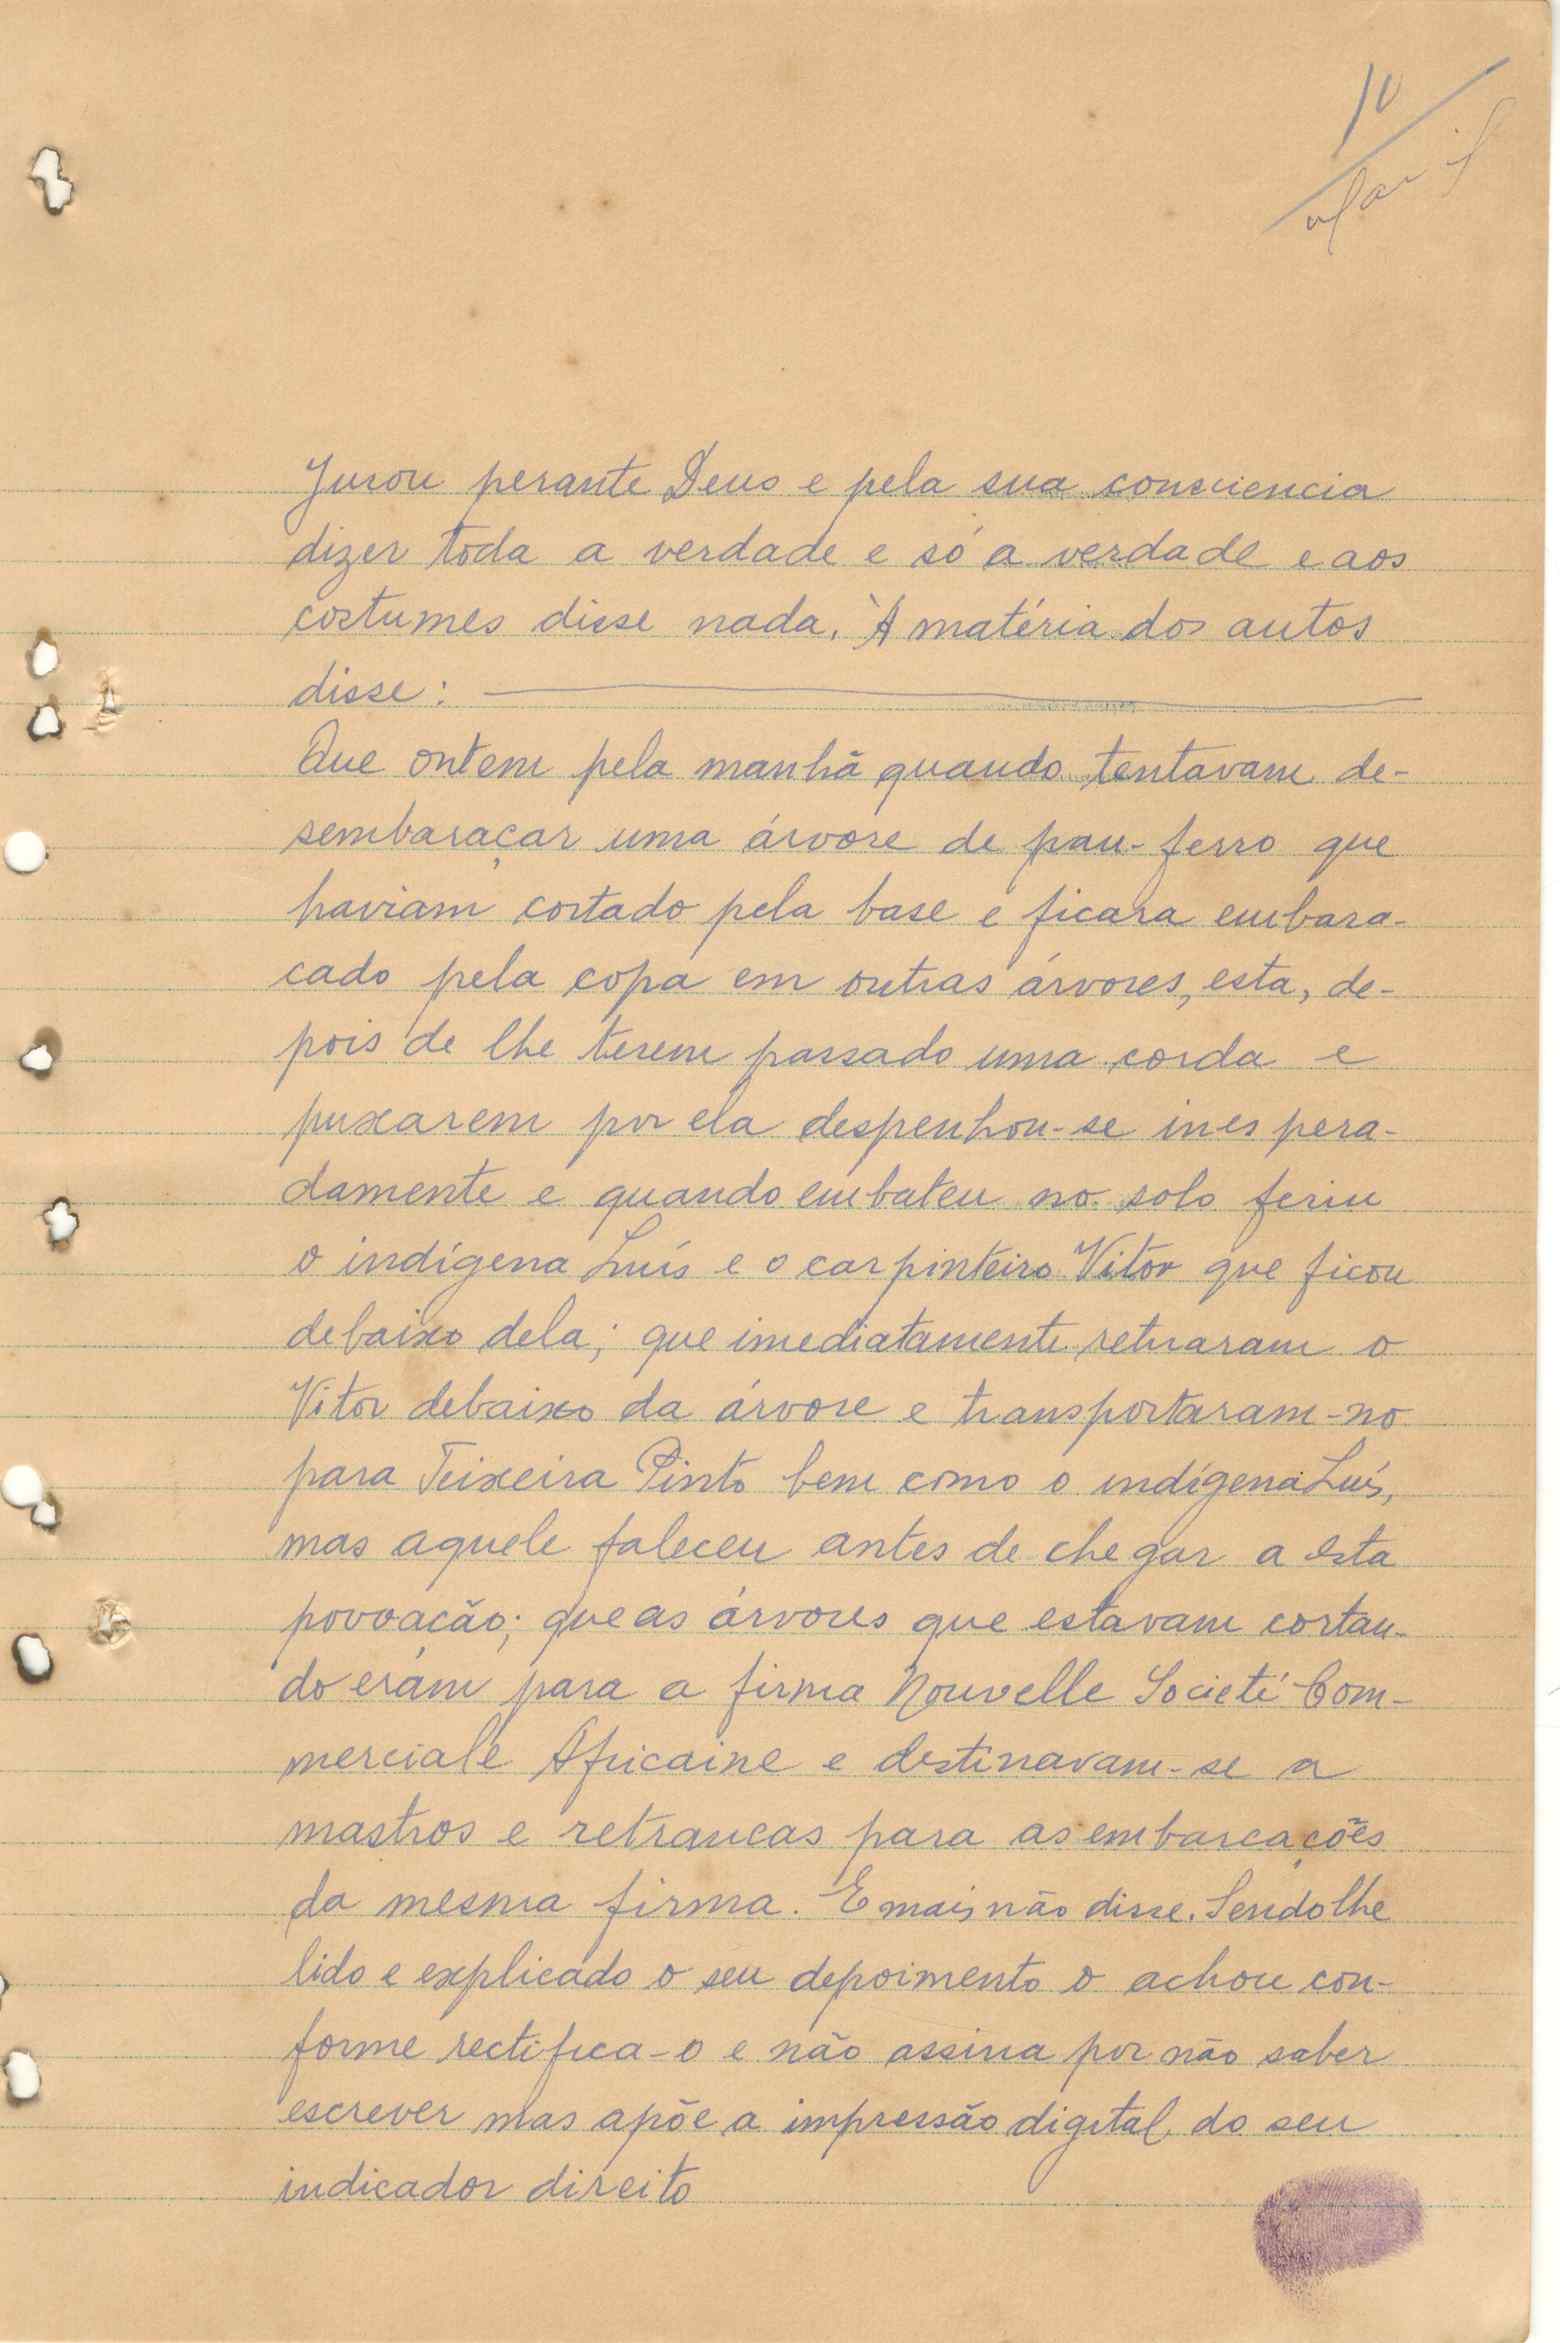 10
Jurou perante Deus e pela sua consciencia
dizer toda a verdade e só a verdade e aos
costumes disse nada. À matéria dos autos
disse:
Que ontem pela manhã quando tentavam de-
sembaraçar uma árvore de pau-ferro que
haviam cortado pela base e ficara embara-
cado pela copa em outras árvores, esta, de-
pois de lhe terem passado uma corda e
puxarem por ela despenhou-se inespera-
damente e quando embateu no solo feriu
o indígena Luís e o carpinteiro Vitor que ficou
debaixo dela; que imediatamente retiraram o
Vitor debaixo da árvore e transportaram-no
para Teixeira Pinto bem como o indígena Luís,
mas aquele faleceu antes de chegar a esta
povoação; que as árvores que estavam cortan-
do eram para a firma Nouvelle Societé Com-
merciale Africaine e destinavam-se a
mastros e retrancas para as embarcações
da mesma firma. E mais não disse. Sendo lhe
lido e explicado o seu depoimento o achou con-
forme rectifica-o e não assina por não saber
escrever mas apõe a impressão digital do seu
indicador direito